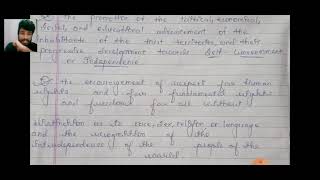 the promotion of the political, economical,
Social, and educational advancement of the
inhabitants of the trust territories and their
progressive development towards Self Government
or Independence
the encouragement of respect for human
rights and for fundamental rights
and freedoms for all without
distinction as to race, sex, religion or language
and the recognition of the
interdependence of the people of the
world